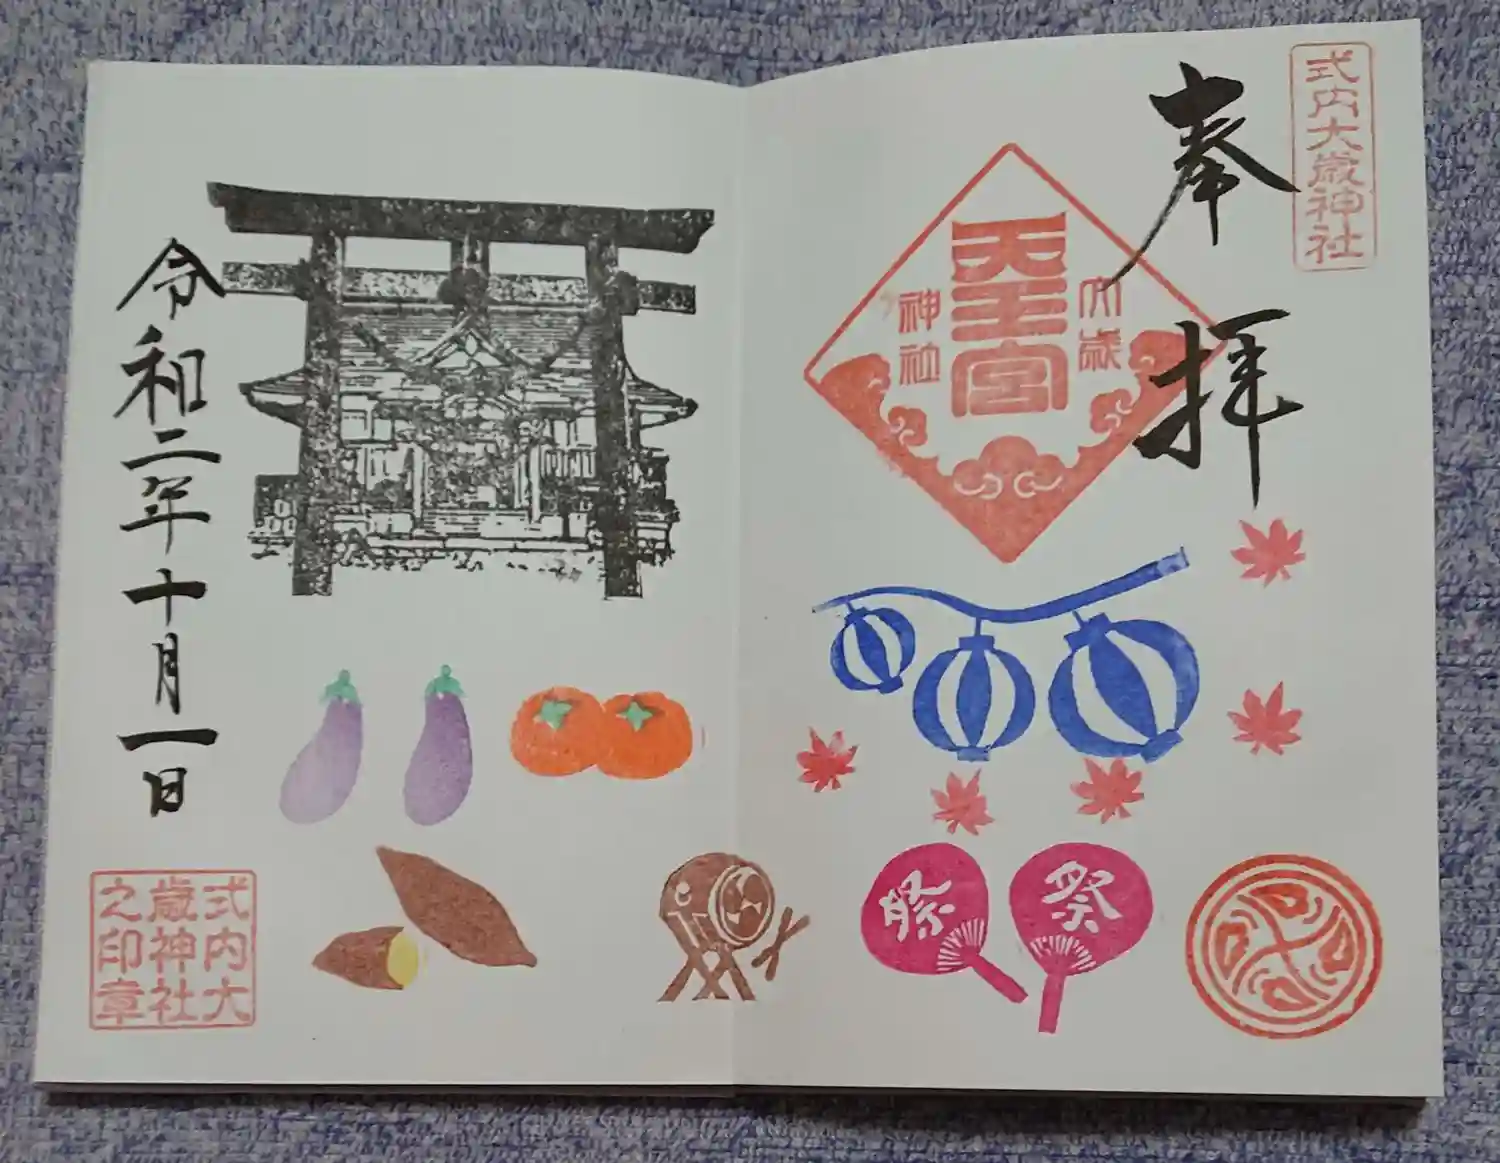 式内大歳神社
奉拝
大歳
天王宮
神社
祭
祭
令和二年十月一日
式内大
歳神社
之印章